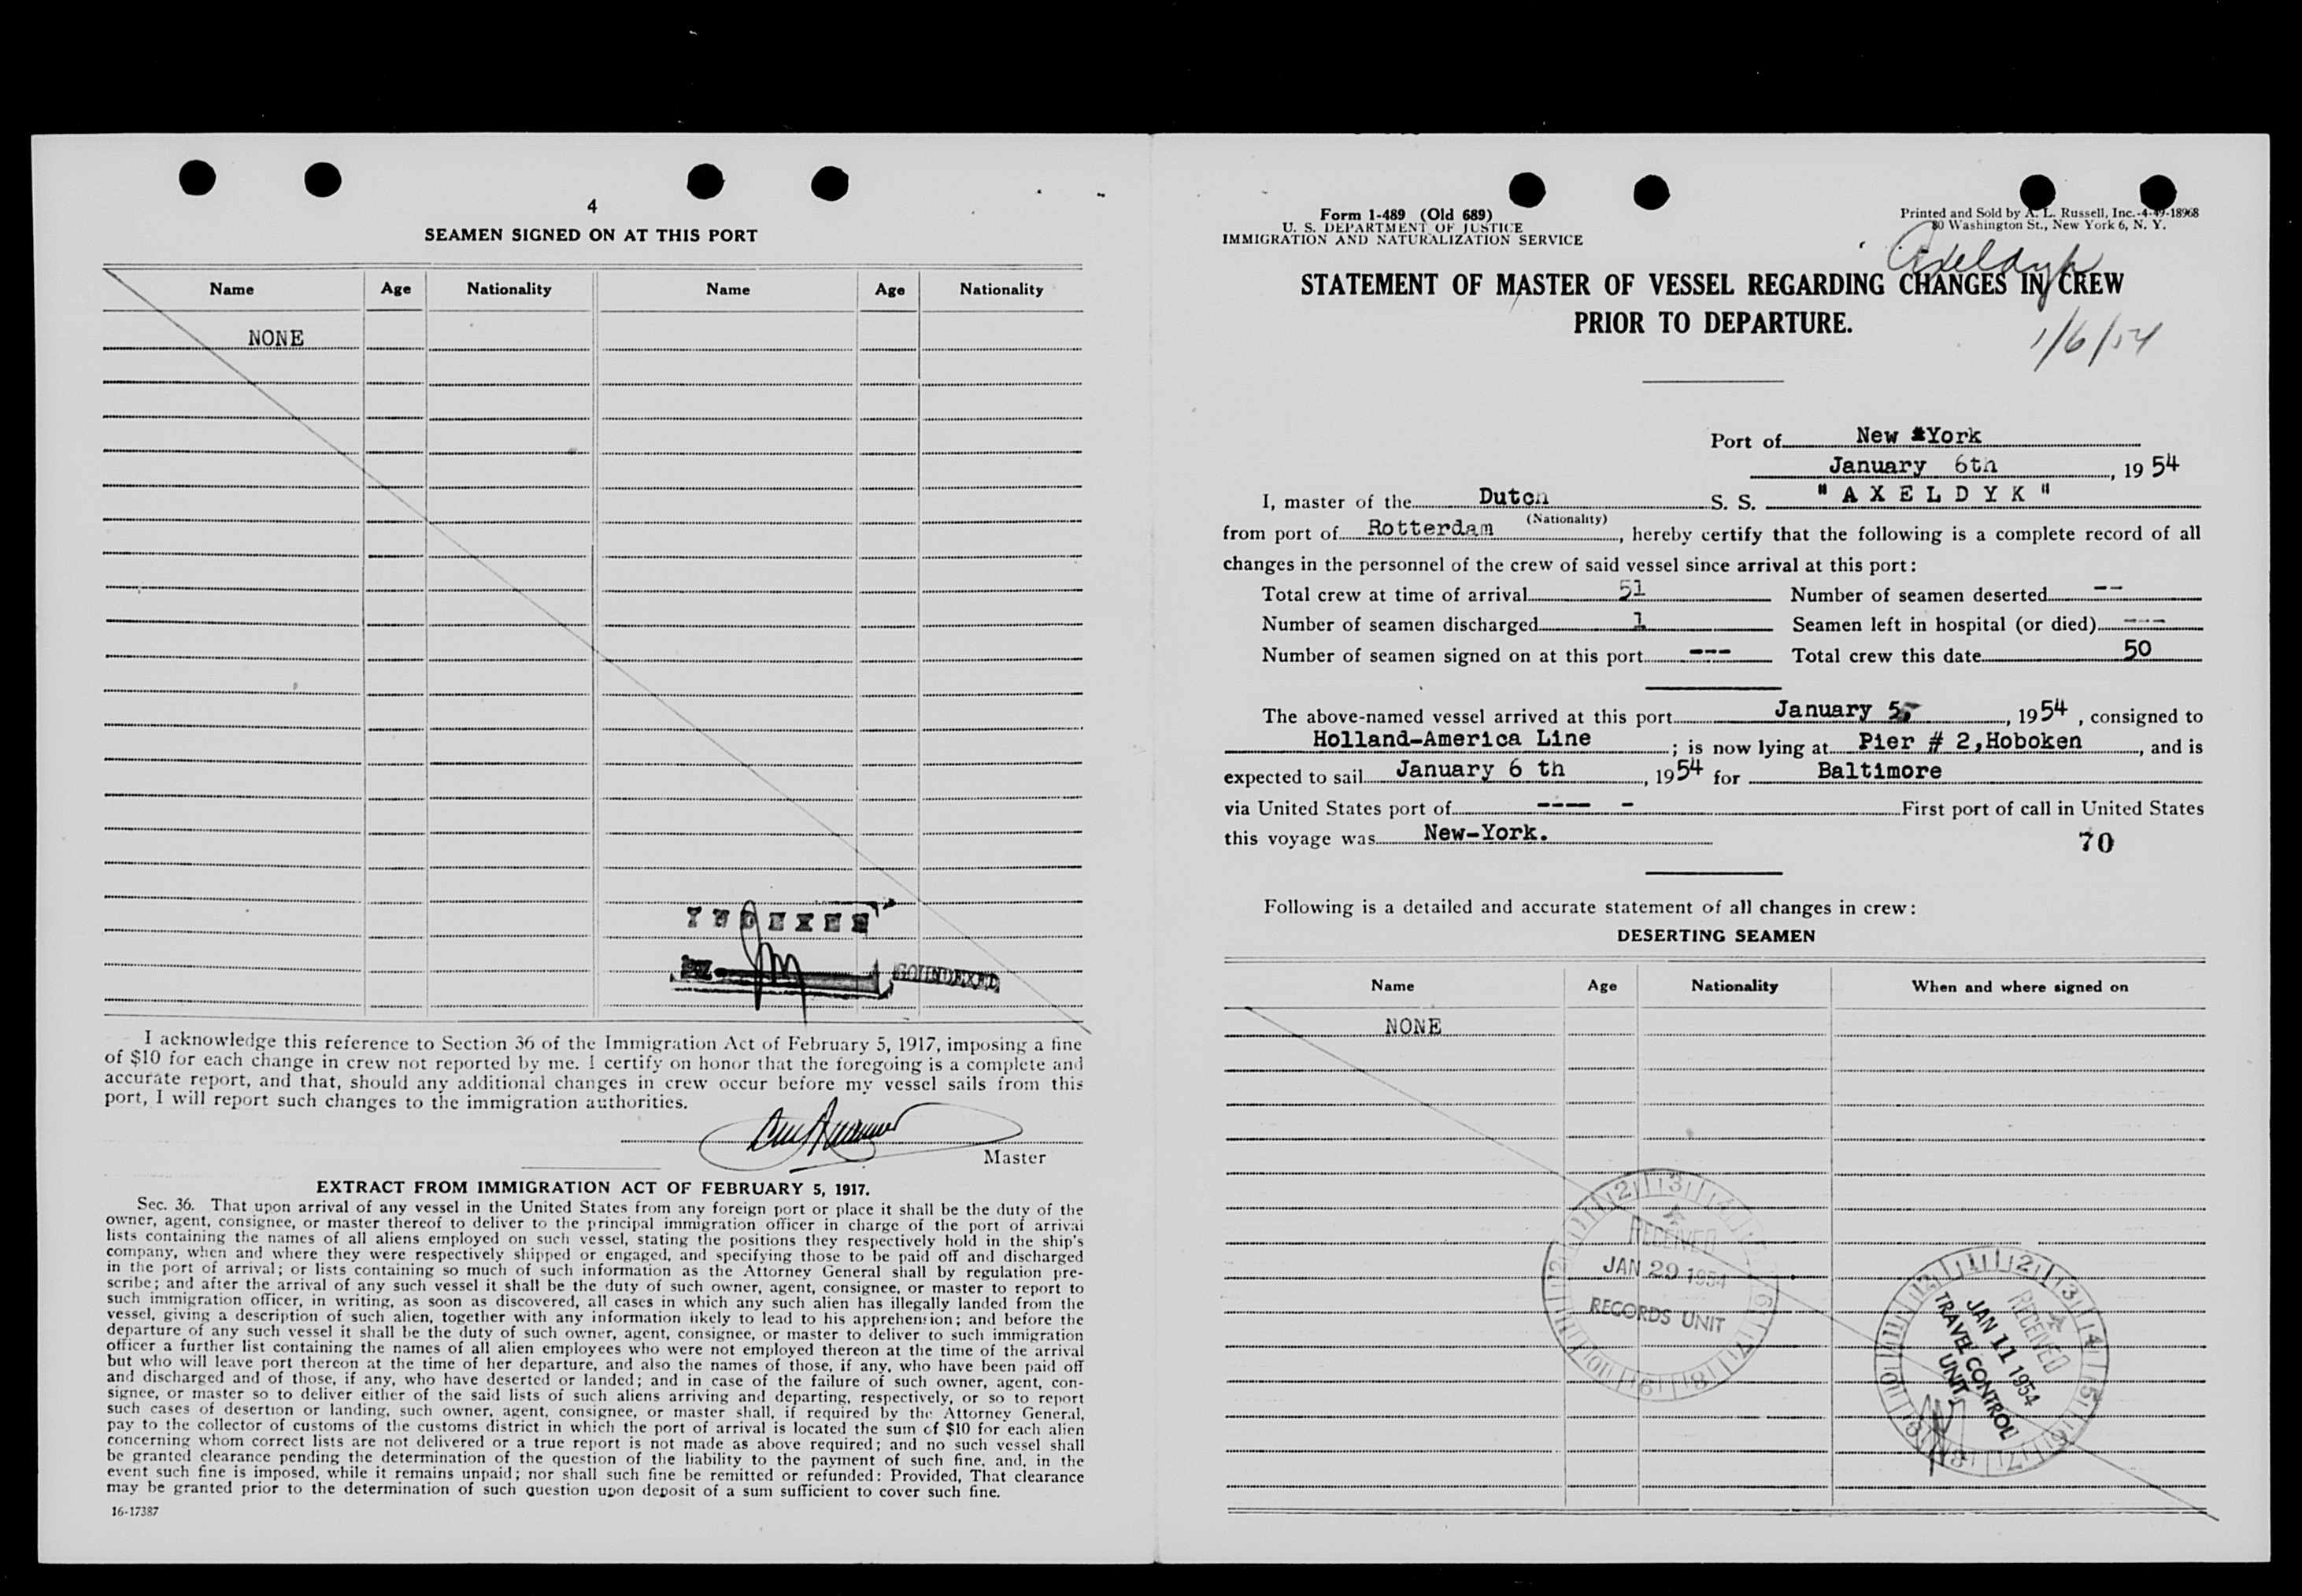 4
SEAMEN SIGNED ON AT THIS PORT
Name Age Nationality Name Age Nationality
NONE
INDEXED
SOUNDEXED
I acknowledge this reference to Section 36 of the Immigration Act of February 5, 1917, imposing a fine
of $10 for each change in crew not reported by me. I certify on honor that the foregoing is a complete and
accurate report, and that, should any additional changes in crew occur before my vessel sails from this
port, I will report such changes to the immigration authorities.
Master
EXTRACT FROM IMMIGRATION ACT OF FEBRUARY 5, 1917.
Sec. 36. That upon arrival of any vessel in the United States from any foreign port or place it shall be the duty of the
owner, agent, consignee, or master thereof to deliver to the principal immigration officer in charge of the port of arrival
lists containing the names of all aliens employed on such vessel, stating the positions they respectively hold in the ship's
company, when and where they were respectively shipped or engaged, and specifying those to be paid off and discharged
in the port of arrival; or lists containing so much of such information as the Attorney General shall by regulation pre-
scribe; and after the arrival of any such vessel it shall be the duty of such owner, agent, consignee, or master to report to
such immigration officer, in writing, as soon as discovered, all cases in which any such alien has illegally landed from the
vessel, giving a description of such alien, together with any information likely to lead to his apprehension; and before the
departure of any such vessel it shall be the duty of such owner, agent, consignee, or master to deliver to such immigration
officer a further list containing the names of all alien employees who were not employed thereon at the time of the arrival
but who will leave port thereon at the time of her departure, and also the names of those, if any, who have been paid off
and discharged and of those, if any, who have deserted or landed; and in case of the failure of such owner, agent, con-
signee, or master so to deliver either of the said lists of such aliens arriving and departing, respectively, or so to report
such cases of desertion or landing, such owner, agent, consignee, or master shall, if required by the Attorney General,
pay to the collector of customs of the customs district in which the port of arrival is located the sum of $10 for each alien
concerning whom correct lists are not delivered or a true report is not made as above required; and no such vessel shall
be granted clearance pending the determination of the question of the liability to the payment of such fine, and, in the
event such fine is imposed, while it remains unpaid; nor shall such fine be remitted or refunded: Provided, That clearance
may be granted prior to the determination of such question upon deposit of a sum sufficient to cover such fine.
16-17387
Form 1-489 (Old 689)
U. S. DEPARTMENT OF JUSTICE
IMMIGRATION AND NATURALIZATION SERVICE
Printed and Sold by A. L. Russell, Inc.-4-49-18968
80 Washington St., New York 6, N. Y.
Axeldyk
STATEMENT OF MASTER OF VESSEL REGARDING CHANGES IN CREW
PRIOR TO DEPARTURE.
1/6/54
Port of New York
January 6th, 1954
I, master of the Dutch S. S. "AXELDYK"
(Nationality)
from port of Rotterdam, hereby certify that the following is a complete record of all
changes in the personnel of the crew of said vessel since arrival at this port:
Total crew at time of arrival 51 Number of seamen deserted --
Number of seamen discharged 1 Seamen left in hospital (or died) ---
Number of seamen signed on at this port --- Total crew this date 50
The above-named vessel arrived at this port January 5, 1954, consigned to
Holland-America Line; is now lying at Pier # 2,Hoboken, and is
expected to sail January 6 th, 1954 for Baltimore
via United States port of ---- - First port of call in United States
this voyage was New-York.
70
Following is a detailed and accurate statement of all changes in crew:
DESERTING SEAMEN
Name Age Nationality When and where signed on
NONE
RECEIVED
JAN 29 1954
RECORDS UNIT
RECEIVED
JAN 11 1954
TRAVEL CONTROL
UNIT